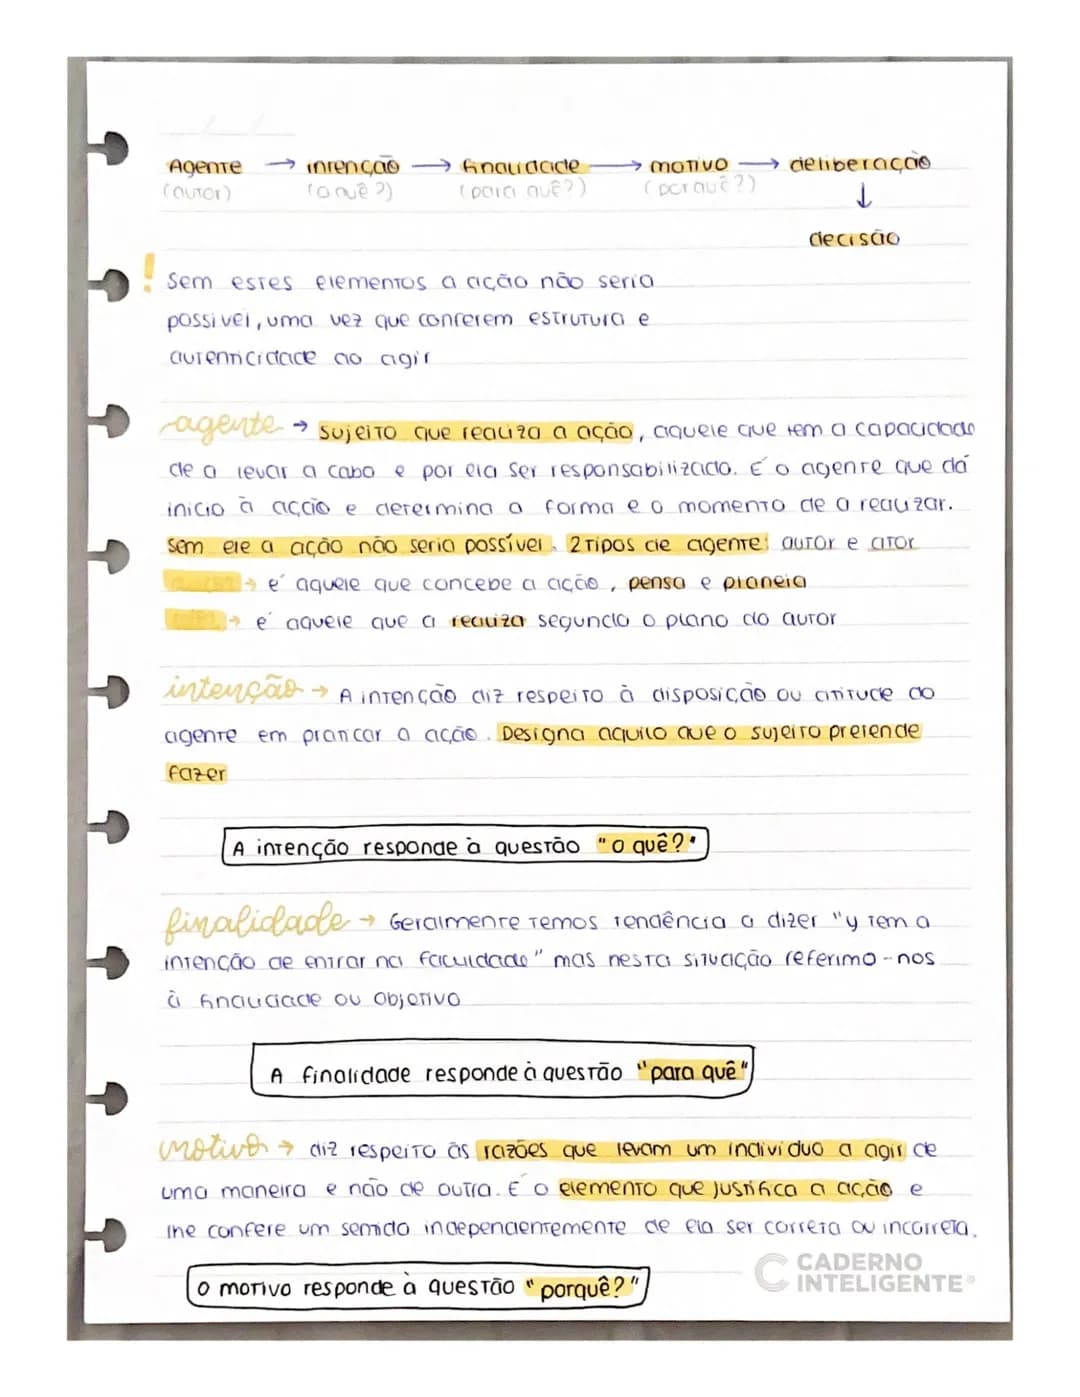 Agente → intenção → finalidade → motivo → deliberação
(autor) (o quê?) (para quê?) (porquê?) ↓
decisão
! Sem estes elementos a ação não seria
possível, uma vez que conferem estrutura e
autenticidade ao agir
agente → sujeito que realiza a ação, aquele que tem a capacidade
de a levar a cabo e por ela ser responsabilizado. É o agente que dá
inicio à acção e determina a forma e o momento de a realizar.
Sem ele a ação não seria possível. 2 tipos de agente: autor e ator
autor → é aquele que concebe a ação, pensa e planeia
→ é aquele que a realiza segundo o plano do autor
intenção → A intenção diz respeito à disposição ou atitude do
agente em praticar a ação. Designa aquilo que o sujeito pretende
fazer
A intenção responde à questão "o quê?"
finalidade → Geralmente temos tendência a dizer "y tem a
intenção de entrar na faculdade" mas nesta situação referimo-nos
à finalidade ou objetivo
A finalidade responde à questão "para quê"
motivo → diz respeito às razões que levam um individuo a agir de
uma maneira e não de outra. É o elemento que justifica a ação e
lhe confere um sentido independentemente de ela ser correta ou incorreta.
CADERNO
INTELIGENTE®
O motivo responde à questão "porquê?"